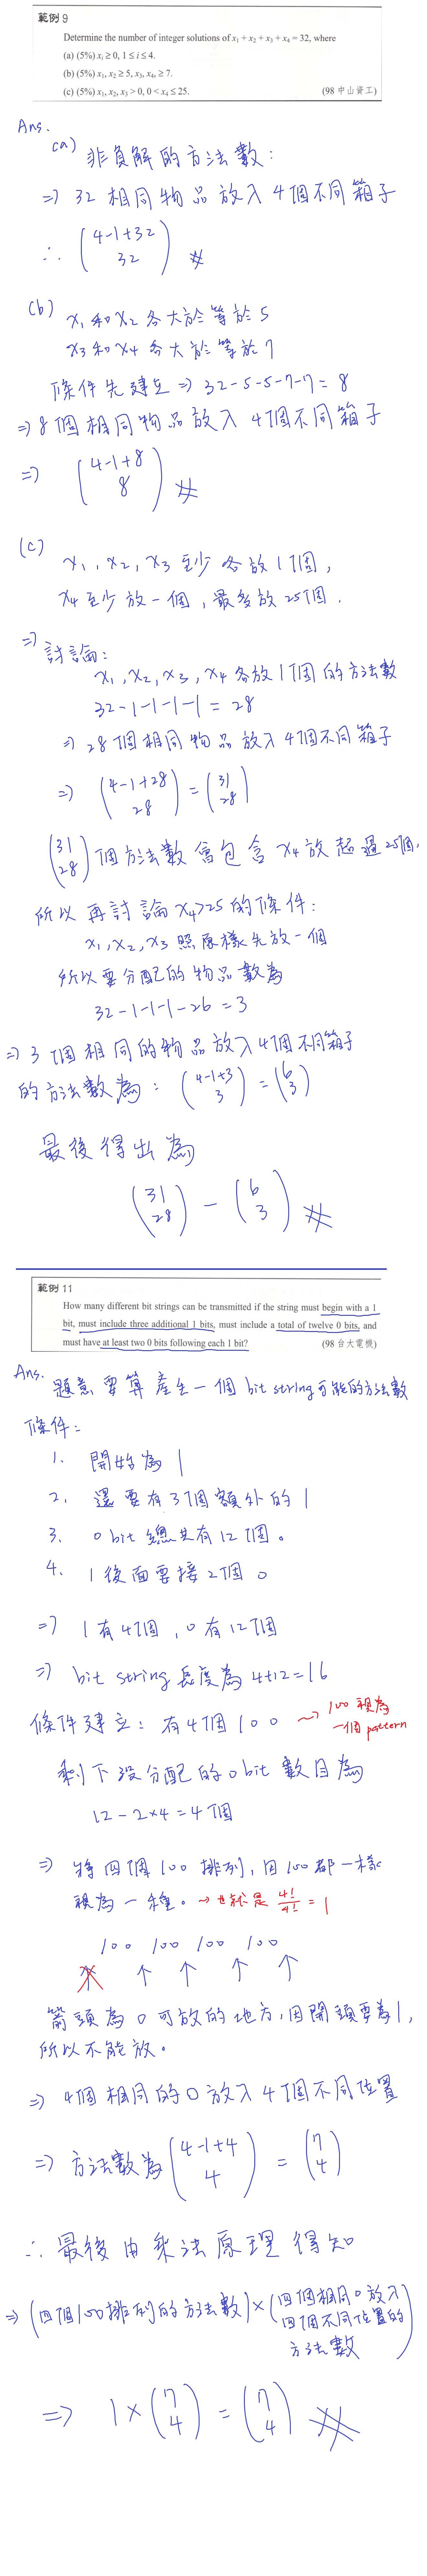 範例 9
Determine the number of integer solutions of x₁ + x₂ + x₃ + x₄ = 32, where
(a) (5%) xᵢ ≥ 0, 1 ≤ i ≤ 4.
(b) (5%) x₁, x₂ ≥ 5, x₃, x₄, ≥ 7.
(c) (5%) x₁, x₂, x₃ > 0, 0 < x₄ ≤ 25. (98 中山資工)
Ans.
(a) 非負解的方法數:
⇒ 32 相同物品放入 4個不同箱子
∴ (4-1+32 32) ※
(b) x₁和x₂各大於等於5
x₃和x₄各大於等於7
條件先建立 ⇒ 32-5-5-7-7=8
⇒ 8個相同物品放入 4個不同箱子
⇒ (4-1+8 8) ※
(c) x₁, x₂, x₃ 至少各放1個,
x₄至少放一個, 最多放25個.
⇒ 討論:
x₁, x₂, x₃, x₄各放1個的方法數
32-1-1-1-1 = 28
⇒ 28個相同物品放入4個不同箱子
⇒ (4-1+28 28) = (31 28)
(31 28) 個方法數會包含 x₄放超過25個.
所以再討論 x₄>25 的條件:
x₁, x₂, x₃ 照原樣先放一個
所以要分配的物品數為
32-1-1-1-26=3
⇒ 3個相同的物品放入4個不同箱子
的方法數為: (4-1+3 3) = (6 3)
最後得出為
(31 28) - (6 3) ※
範例 11
How many different bit strings can be transmitted if the string must begin with a 1
bit, must include three additional 1 bits, must include a total of twelve 0 bits, and
must have at least two 0 bits following each 1 bit? (98 台大電機)
Ans. 題意要算產生一個 bit string可能的方法數
條件:
1. 開始為 1
2. 還要有3個額外的 1
3. 0 bit 總共有12個。
4. 1後面要接2個 0
⇒ 1有4個, 0有12個
⇒ bit string長度為 4+12=16
條件建立: 有4個 100 ~> 100 視為
一個 pattern
剩下沒分配的0 bit 數目為
12-2×4=4個
⇒ 將四個100排列, 因100都一樣
視為一種。 → 也就是 4!/4! = 1
100 100 100 100
↑ ↑ ↑ ↑ ↑
箭頭為0可放的地方, 因開頭要為1,
所以不能放。
⇒ 4個相同的0放入4個不同位置
⇒ 方法數為 (4-1+4 4) = (7 4)
∴ 最後由乘法原理得知
⇒ (四個100排列的方法數) × (四個相同0放入
四個不同位置的
方法數)
⇒ 1 × (7 4) = (7 4) ※